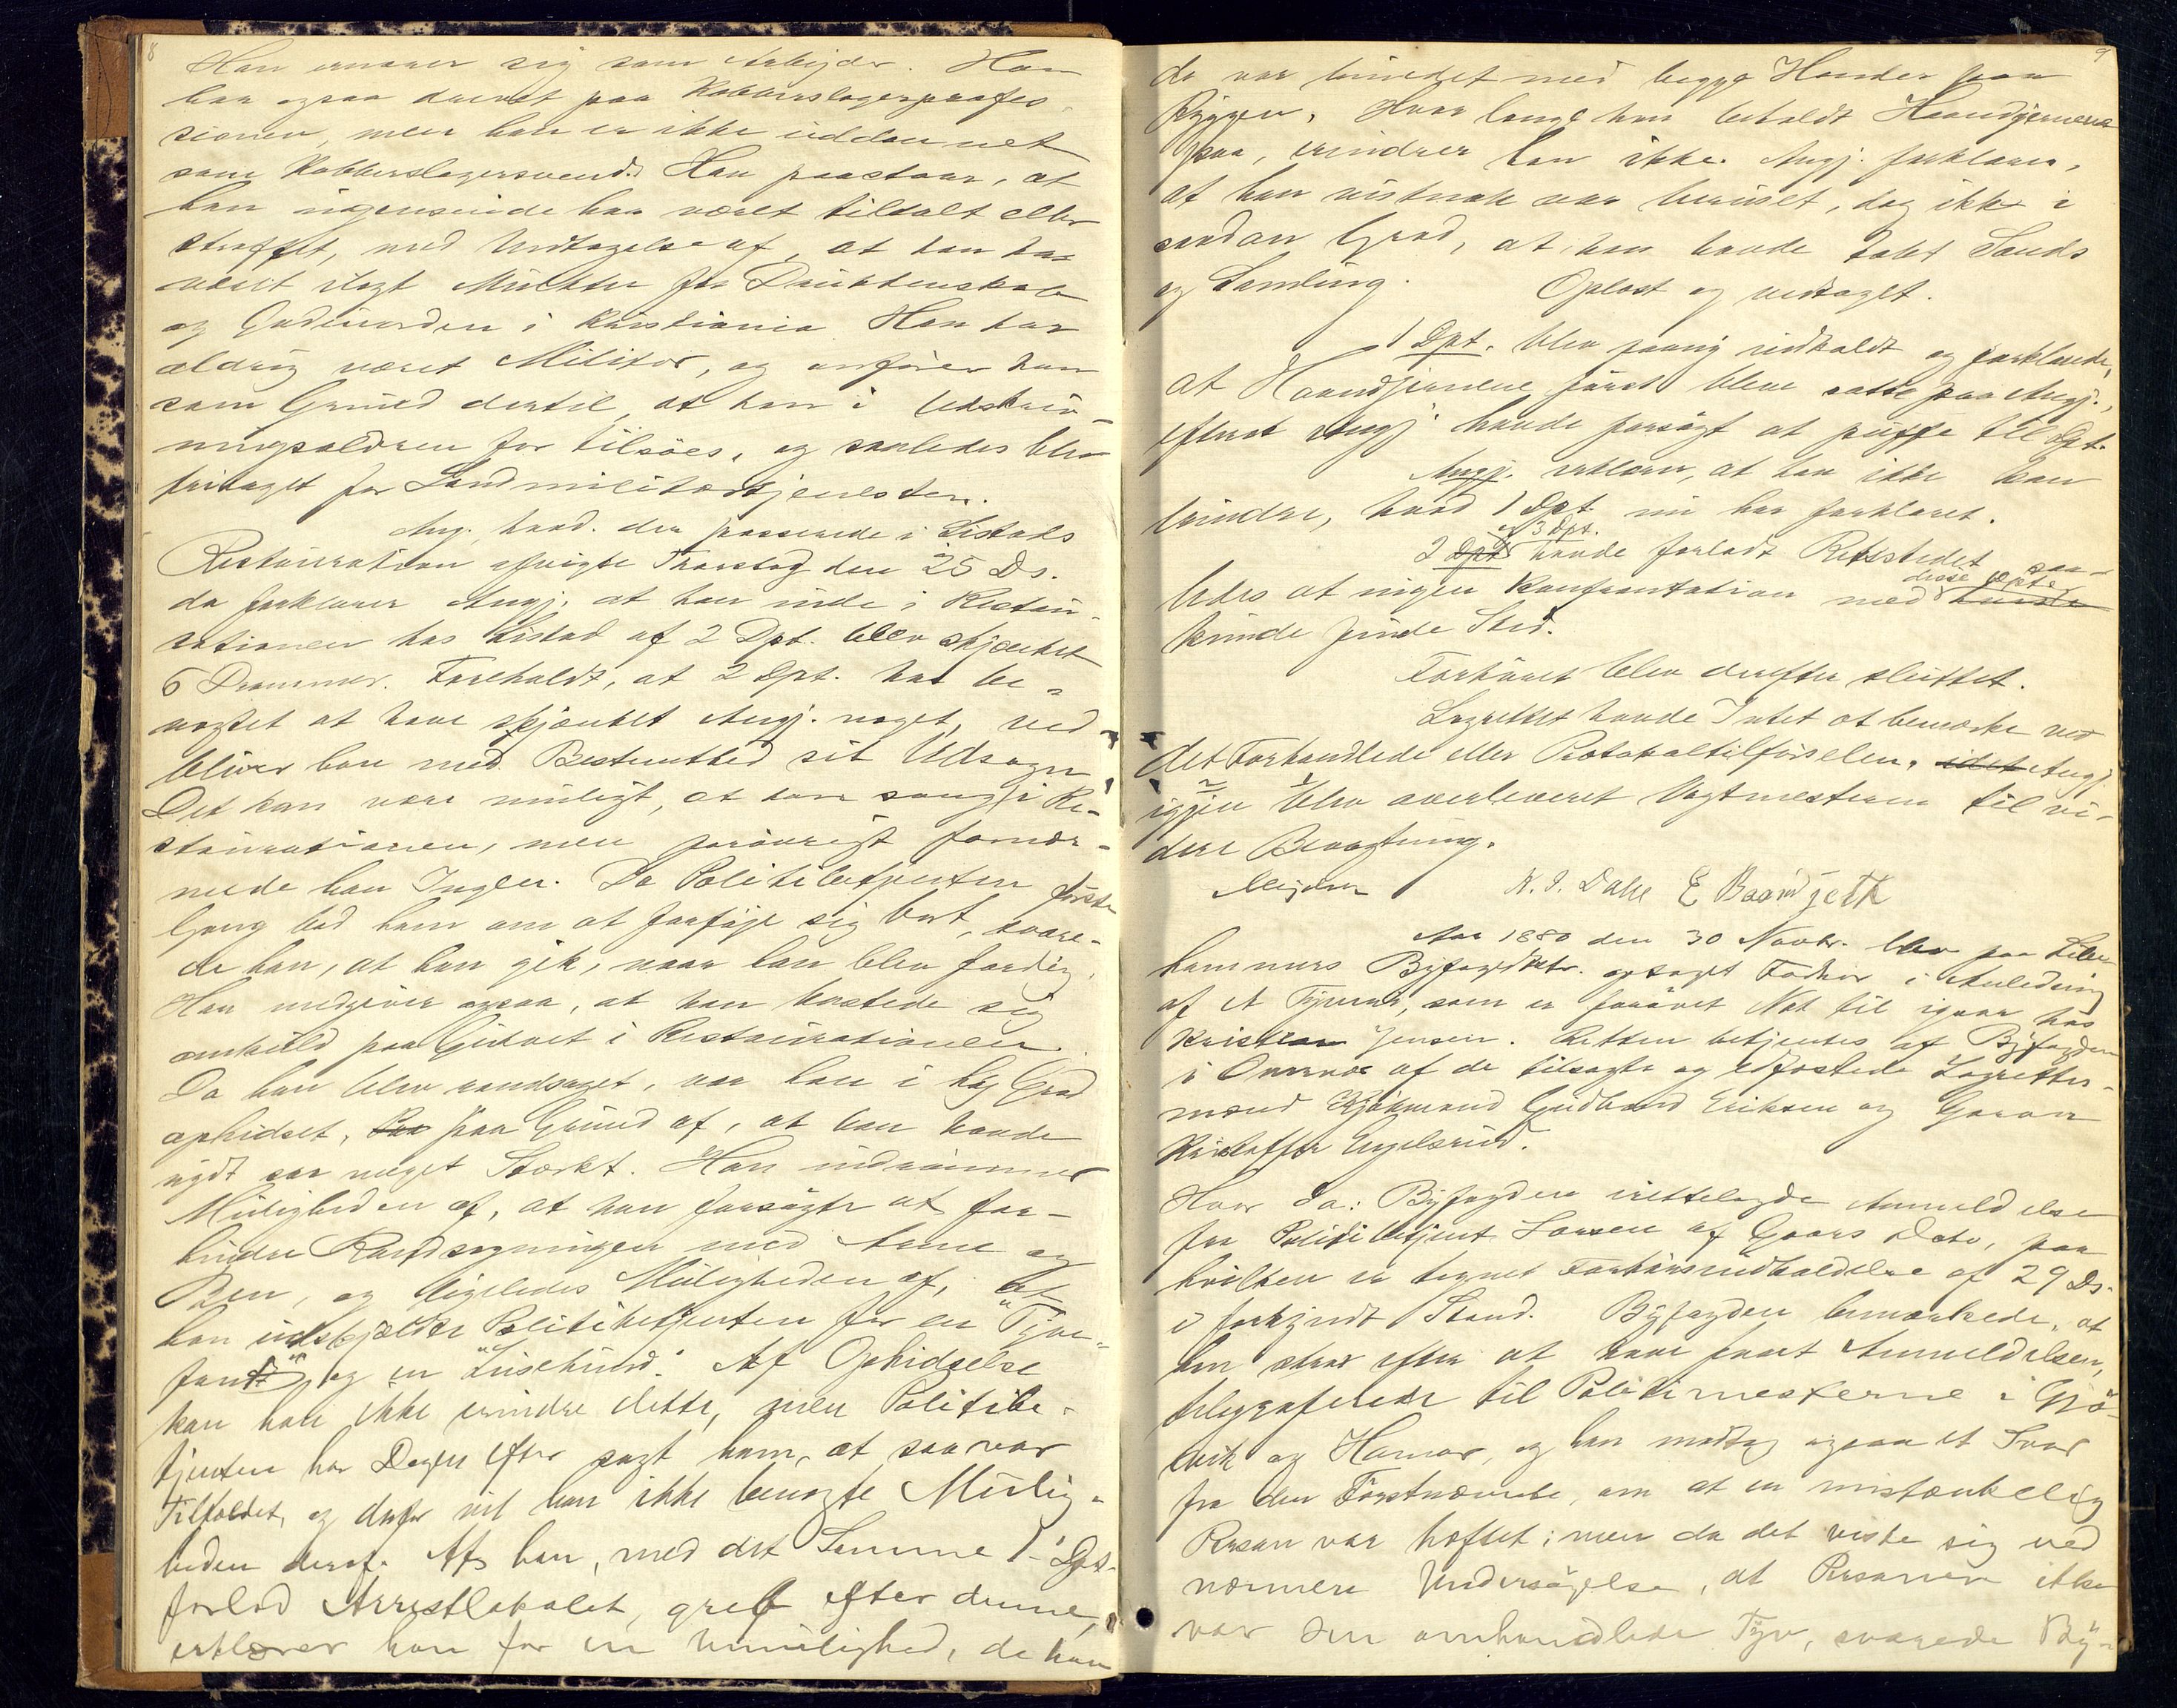 8
Han ernærer sig som Arbejder. Han
har ogsaa drevet paa Kobberslagerprofes-
sionen, men han er ikke uddannet
som Kobberslagersvend. Han paastaar, at
han ingensinde har været tiltalt eller
straffet, med Undtagelse af, at han har
været ilagt Mulkter for Drukkenskab
og Gadeuorden i Kristiania Han har
aldrig været Militær, og anfører han
som Grund dertil, at han i Udskriv-
ningsalderen for tilsøes, og saaledes blev
fritaget for Landmilitærtjenesten.
Ang. hvad der passerede i Listads
Restauration afvigte Thorsdag den 25 Ds.
da forklarer Angj. at han inde i Restau-
rationen hos Listad af 2 Dpt. blev skjænket
6 Drammer. Foreholdt, at 2 Dpt. har be-
nægtet at have skjænket Angj. noget, ved
bliver han med Bestemthed sit Udsagn
Det kan være muligt, at han sang i Re-
staurationen, men forøvrigt fornær-
mede han Ingen. Da Politibetjenten første
Gang bad ham om at forføje sig bort, svare-
de han, at han gik, naar han blev færdig.
Han medgiver ogsaa, at han kastede sig
omkuld paa Gulvet i Restaurationen.
Da han blev randsaget, var han i høj Grad
ophidset, paa Grund af, at han havde
nydt saa meget Stærkt. Han indrømmer
Muligheden af, at han forsøgte at for-
hindre Randsagningen med Arme og
Ben, og ligeledes Muligheden af, at
han udskjældte Politibetjenten for en "Tyve-
fant" og en "Lusehund". Af Ophidselse
kan han ikke erindre dette, men Politibe-
tjenten har Dagen efter sagt ham, at saa var
Tilfældet, og derfor vil han ikke benægte Mulig-
heden deraf. At han, med det Samme 1 Dpt.
forlod Arrestlokalet, greb efter denne,
erklærer han for en Umulighed, da han
9
da var bundet med begge Hænder paa
Ryggen. Hvor længe han beholdt Haandjernene
paa, erindrer han ikke. Angj. forklarer,
at han vistnok var beruset, dog ikke i
saadan Grad, at han havde tabt Sands
og Samling. Oplæst og vedtaget.
1 Dpt. blev paany indkaldt og forklarede,
at Haandjernene først bleve satte paa Angj.,
efterat Angj havde forsøgt at puffe til Dpt.
Angj. erklærer, at han ikke kan
erindre, hvad 1 Dpt nu har forklaret.
og 3 Dpt.
2 Dpt havde forladt Retsstedet saa-
disse Dpte
ledes at ingen Konfrontation med
kunde finde Sted.
Forhøret blev derefter sluttet.
Lagrettet havde Intet at bemærke ved
det Forhandlede eller Protokoltilførselen. idet Angj.
igjen blev overleveret Vagtmesteren til vi-
dere Bevogtning.
N. P. Dahl E Baardseth
Aar 1880 den 30 Novbr. blev paa Lille
hammers Byfogedktr. optaget Forhør i Anledning
af et Tyveri, som er forøvet Nat til igaar hos
Kristian Jensen. Retten betjentes af Byfogden
i Overvær af de tilsagte og edfæstede Lagrettes-
mænd Kjøbmand Gudbrand Eriksen og Garver
Kristoffer Engelsrud.
Hvor da: Byfogden irettelagde Anmeldelse
fra Politibetjent Larsen af Gaars Dato, paa
hvilken er tegnet Forhørsindkaldelse af 29 Ds.
i forkyndt Stand. Byfogden bemærkede, at
han strax efter at have faaet Anmeldelsen,
telegraferede til Politimesterne i Gjø-
vik og Hamar, og han modtog ogsaa et Svar
fra den Førstnævnte, om at en mistænkelig
Person var hæftet; men da det viste sig ved
nærmere Undersøgelse, at Personen ikke
var den omhandlede Tyv, svarede By-